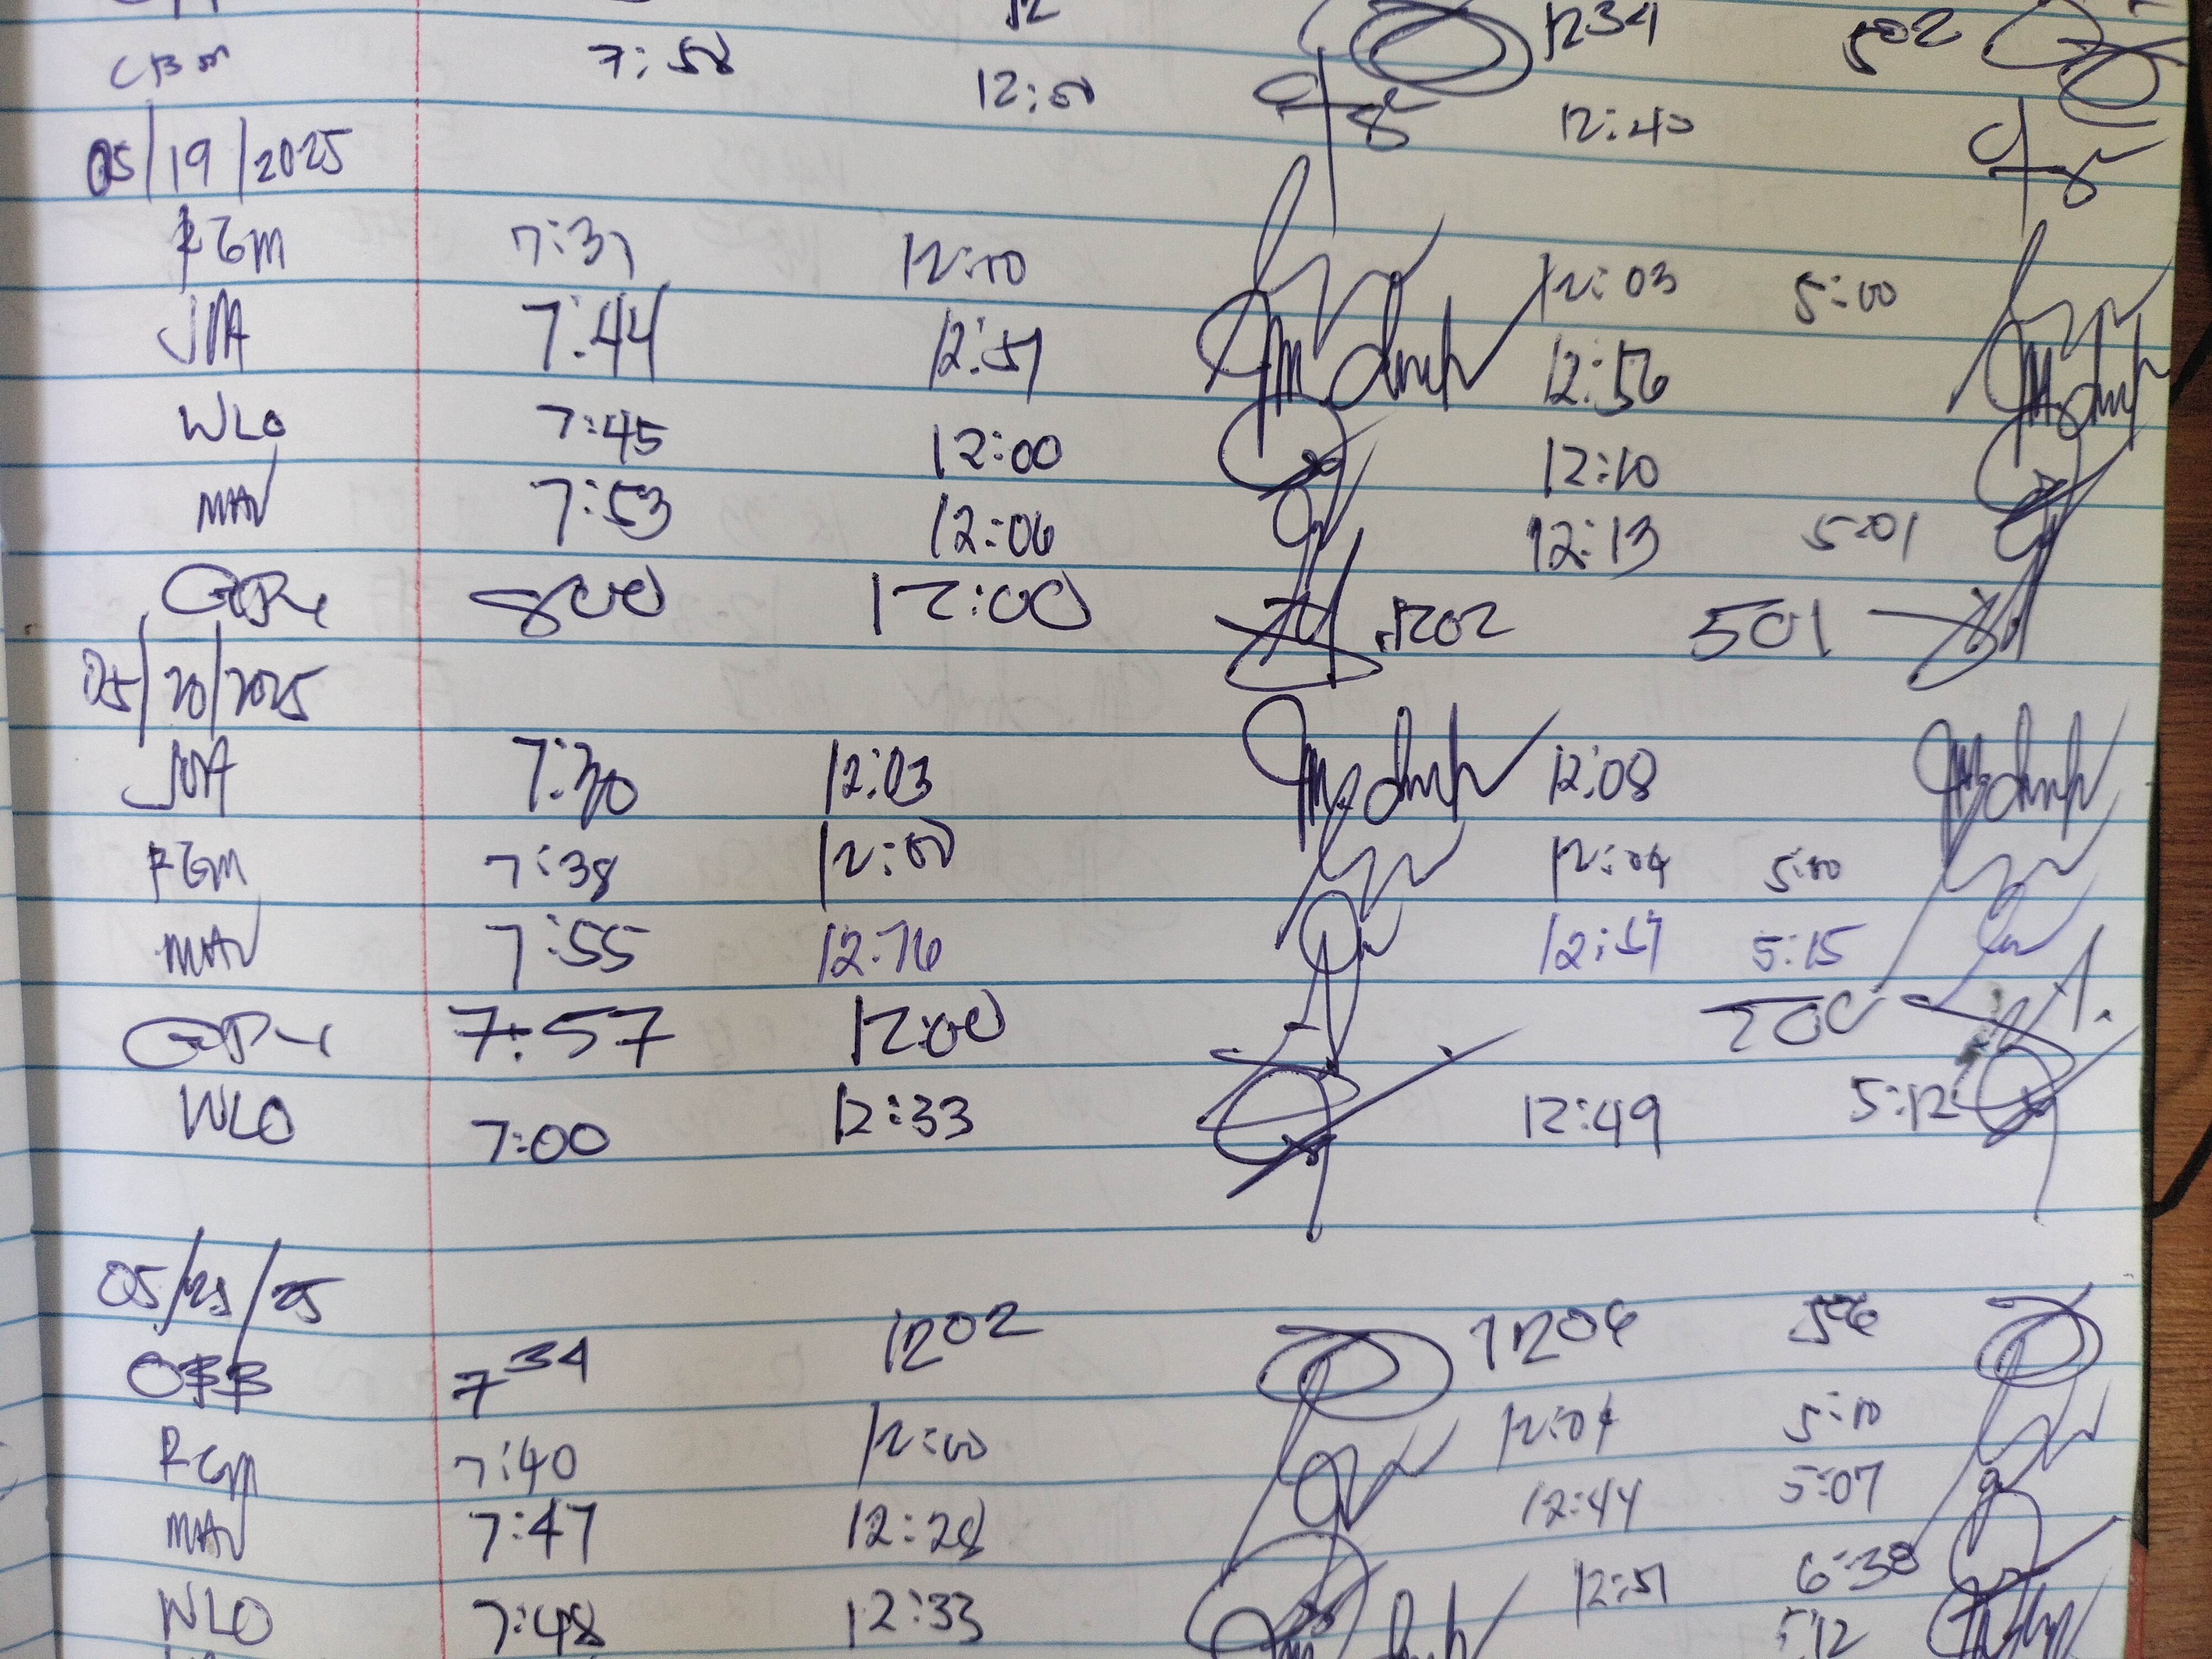 12 1234 502
CBM 7:58 12:00 12:40
05/19/2025
RGM 7:37 12:00 12:03 5:00
JMA 7:44 12:51 12:56
WLO 7:45 12:00 12:10
MAV 7:53 12:06 12:13 5:01
800 12:00 1202 501
05/20/2025
JMA 7:30 12:03 12:08
RGM 7:38 12:00 12:04 5:00
MAV 7:55 12:16 12:57 5:15
7:57 12:00 500
WLO 7:00 12:33 12:49 5:12
05/21/25
734 1202 1206 506
RGM 7:40 12:00 12:04 5:10
MAV 7:47 12:28 12:44 5:07
WLO 7:48 12:33 12:51 6:38
5:12